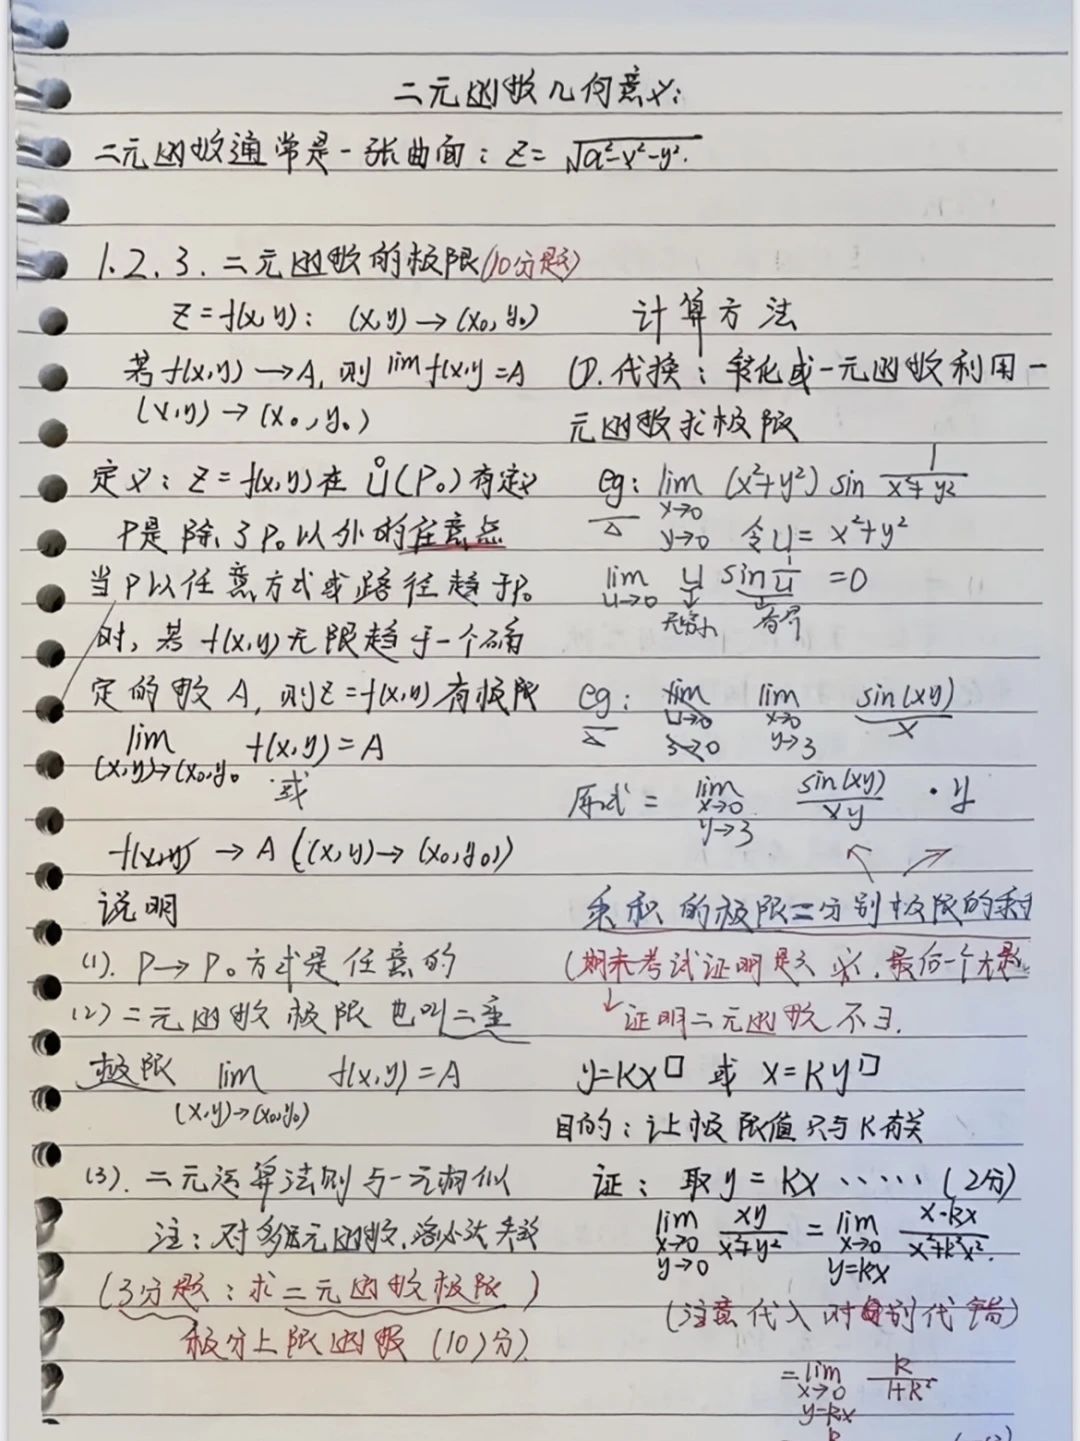 二元函数几何意义：
二元函数通常是一张曲面：z = √(a²-x²-y².
1.2.3.二元函数的极限(10分题)
z=f(x,y): (x,y)→(x₀,y₀)
若f(x,y)→A,则 lim f(x,y =A
(x,y)→(x₀,y₀)
定义：z=f(x,y)在 Ů(P₀)有定义
P是除了P₀以外的任意点
当P以任意方式或路径趋于P₀
时，若 f(x,y)无限趋于一个确
定的数A,则z=f(x,y)有极限
lim f(x,y)=A
(x,y)→(x₀,y₀
或
f(x,y) → A ((x,y)→(x₀,y₀))
说明
(1). P→P₀方式是任意的
(2)二元函数极限也叫二重
极限 lim f(x,y)=A
(x,y)→(x₀,y₀)
(3).二元运算法则与一元相似
注：对多元函数,洛必达失效
(3分题：求二元函数极限)
极分上限函数(10)分).
计算方法
①.代换：转化成一元函数利用一
元函数求极限
eg: lim (x²+y²) sin 1/(x²+y²)
x→0
y→0 令u=x²+y²
lim u sin 1/u =0
u→0 无穷小 有界
eg: lim sin(xy)/x
x→0
y→3
原式= lim sin(xy)/xy · y
x→0
y→3
乘积的极限=分别极限的乘
(期末考试证明是 最后一个大题
↓证明二元函数不∃.
y=kx□ 或 x=ky□
目的：让极限值只与k有关
证：取y=kx ······(2分)
lim xy/(x²+y²) = lim x·kx/(x²+k²x².
x→0 x→0
y→0 y=kx
(注意代入时别代错)
=lim k/(1+k²
x→0
y=kx